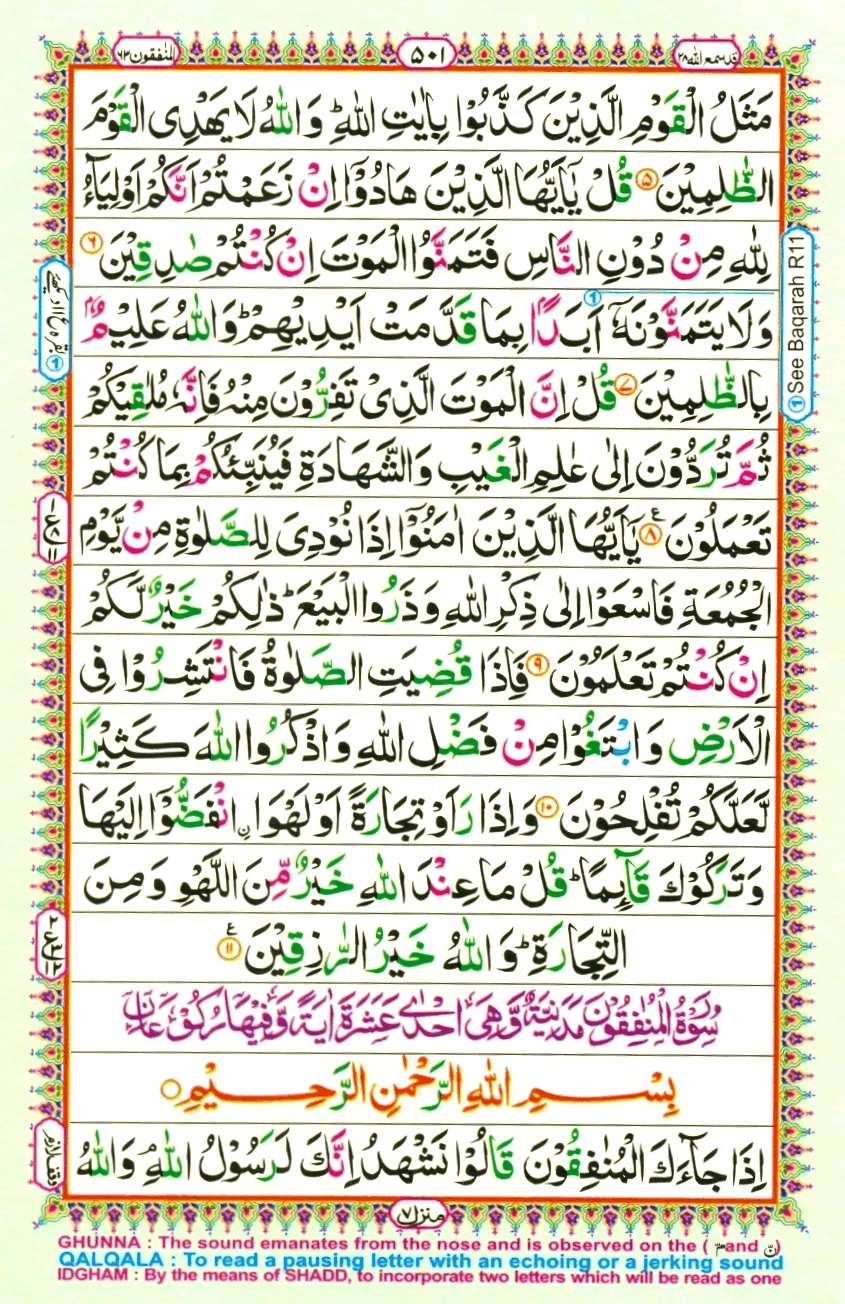 قد سمع الله ۲۸
۵۰۱
المنفقون ۶۳
مَثَلُ الْقَوْمِ الَّذِيْنَ كَذَّبُوْا بِاٰيٰتِ اللّٰهِ ؕ وَاللّٰهُ لَا يَهْدِى الْقَوْمَ
الظّٰلِمِيْنَ ۵ قُلْ يٰۤاَيُّهَا الَّذِيْنَ هَادُوْۤا اِنْ زَعَمْتُمْ اَنَّكُمْ اَوْلِيَآءُ
لِلّٰهِ مِنْ دُوْنِ النَّاسِ فَتَمَنَّوُا الْمَوْتَ اِنْ كُنْتُمْ صٰدِقِيْنَ ۶
وَلَا يَتَمَنَّوْنَهٗۤ اَبَدًۢا بِمَا قَدَّمَتْ اَيْدِيْهِمْ ؕ وَاللّٰهُ عَلِيْمٌۢ
بِالظّٰلِمِيْنَ ۷ قُلْ اِنَّ الْمَوْتَ الَّذِىْ تَفِرُّوْنَ مِنْهُ فَاِنَّهٗ مُلٰقِيْكُمْ
ثُمَّ تُرَدُّوْنَ اِلٰى عٰلِمِ الْغَيْبِ وَالشَّهَادَةِ فَيُنَبِّئُكُمْ بِمَا كُنْتُمْ
تَعْمَلُوْنَ ۸ ع يٰۤاَيُّهَا الَّذِيْنَ اٰمَنُوْۤا اِذَا نُوْدِىَ لِلصَّلٰوةِ مِنْ يَّوْمِ
الْجُمُعَةِ فَاسْعَوْا اِلٰى ذِكْرِ اللّٰهِ وَذَرُوا الْبَيْعَ ؕ ذٰلِكُمْ خَيْرٌ لَّكُمْ
اِنْ كُنْتُمْ تَعْلَمُوْنَ ۹ فَاِذَا قُضِيَتِ الصَّلٰوةُ فَانْتَشِرُوْا فِى
الْاَرْضِ وَابْتَغُوْا مِنْ فَضْلِ اللّٰهِ وَاذْكُرُوا اللّٰهَ كَثِيْرًا
لَّعَلَّكُمْ تُفْلِحُوْنَ ۱۰ وَاِذَا رَاَوْا تِجَارَةً اَوْ لَهْوَا ۨانْفَضُّوْۤا اِلَيْهَا
وَتَرَكُوْكَ قَآئِمًا ؕ قُلْ مَا عِنْدَ اللّٰهِ خَيْرٌ مِّنَ اللَّهْوِ وَمِنَ
التِّجَارَةِ ؕ وَاللّٰهُ خَيْرُ الرّٰزِقِيْنَ ۱۱ ع
سُوْرَةُ الْمُنٰفِقُوْنَ مَدَنِيَّةٌ وَّهِىَ اِحْدٰى عَشَرَةَ اٰيَةً وَّفِيْهَا رُكُوْعَانِ
بِسْمِ اللّٰهِ الرَّحْمٰنِ الرَّحِيْمِ
اِذَا جَآءَكَ الْمُنٰفِقُوْنَ قَالُوْا نَشْهَدُ اِنَّكَ لَرَسُوْلُ اللّٰهِ ۘ وَاللّٰهُ
① See Baqarah R11
وقف لازم
منزل ۷
GHUNNA : The sound emanates from the nose and is observed on the ( مّ and نّ )
QALQALA : To read a pausing letter with an echoing or a jerking sound
IDGHAM : By the means of SHADD, to incorporate two letters which will be read as one